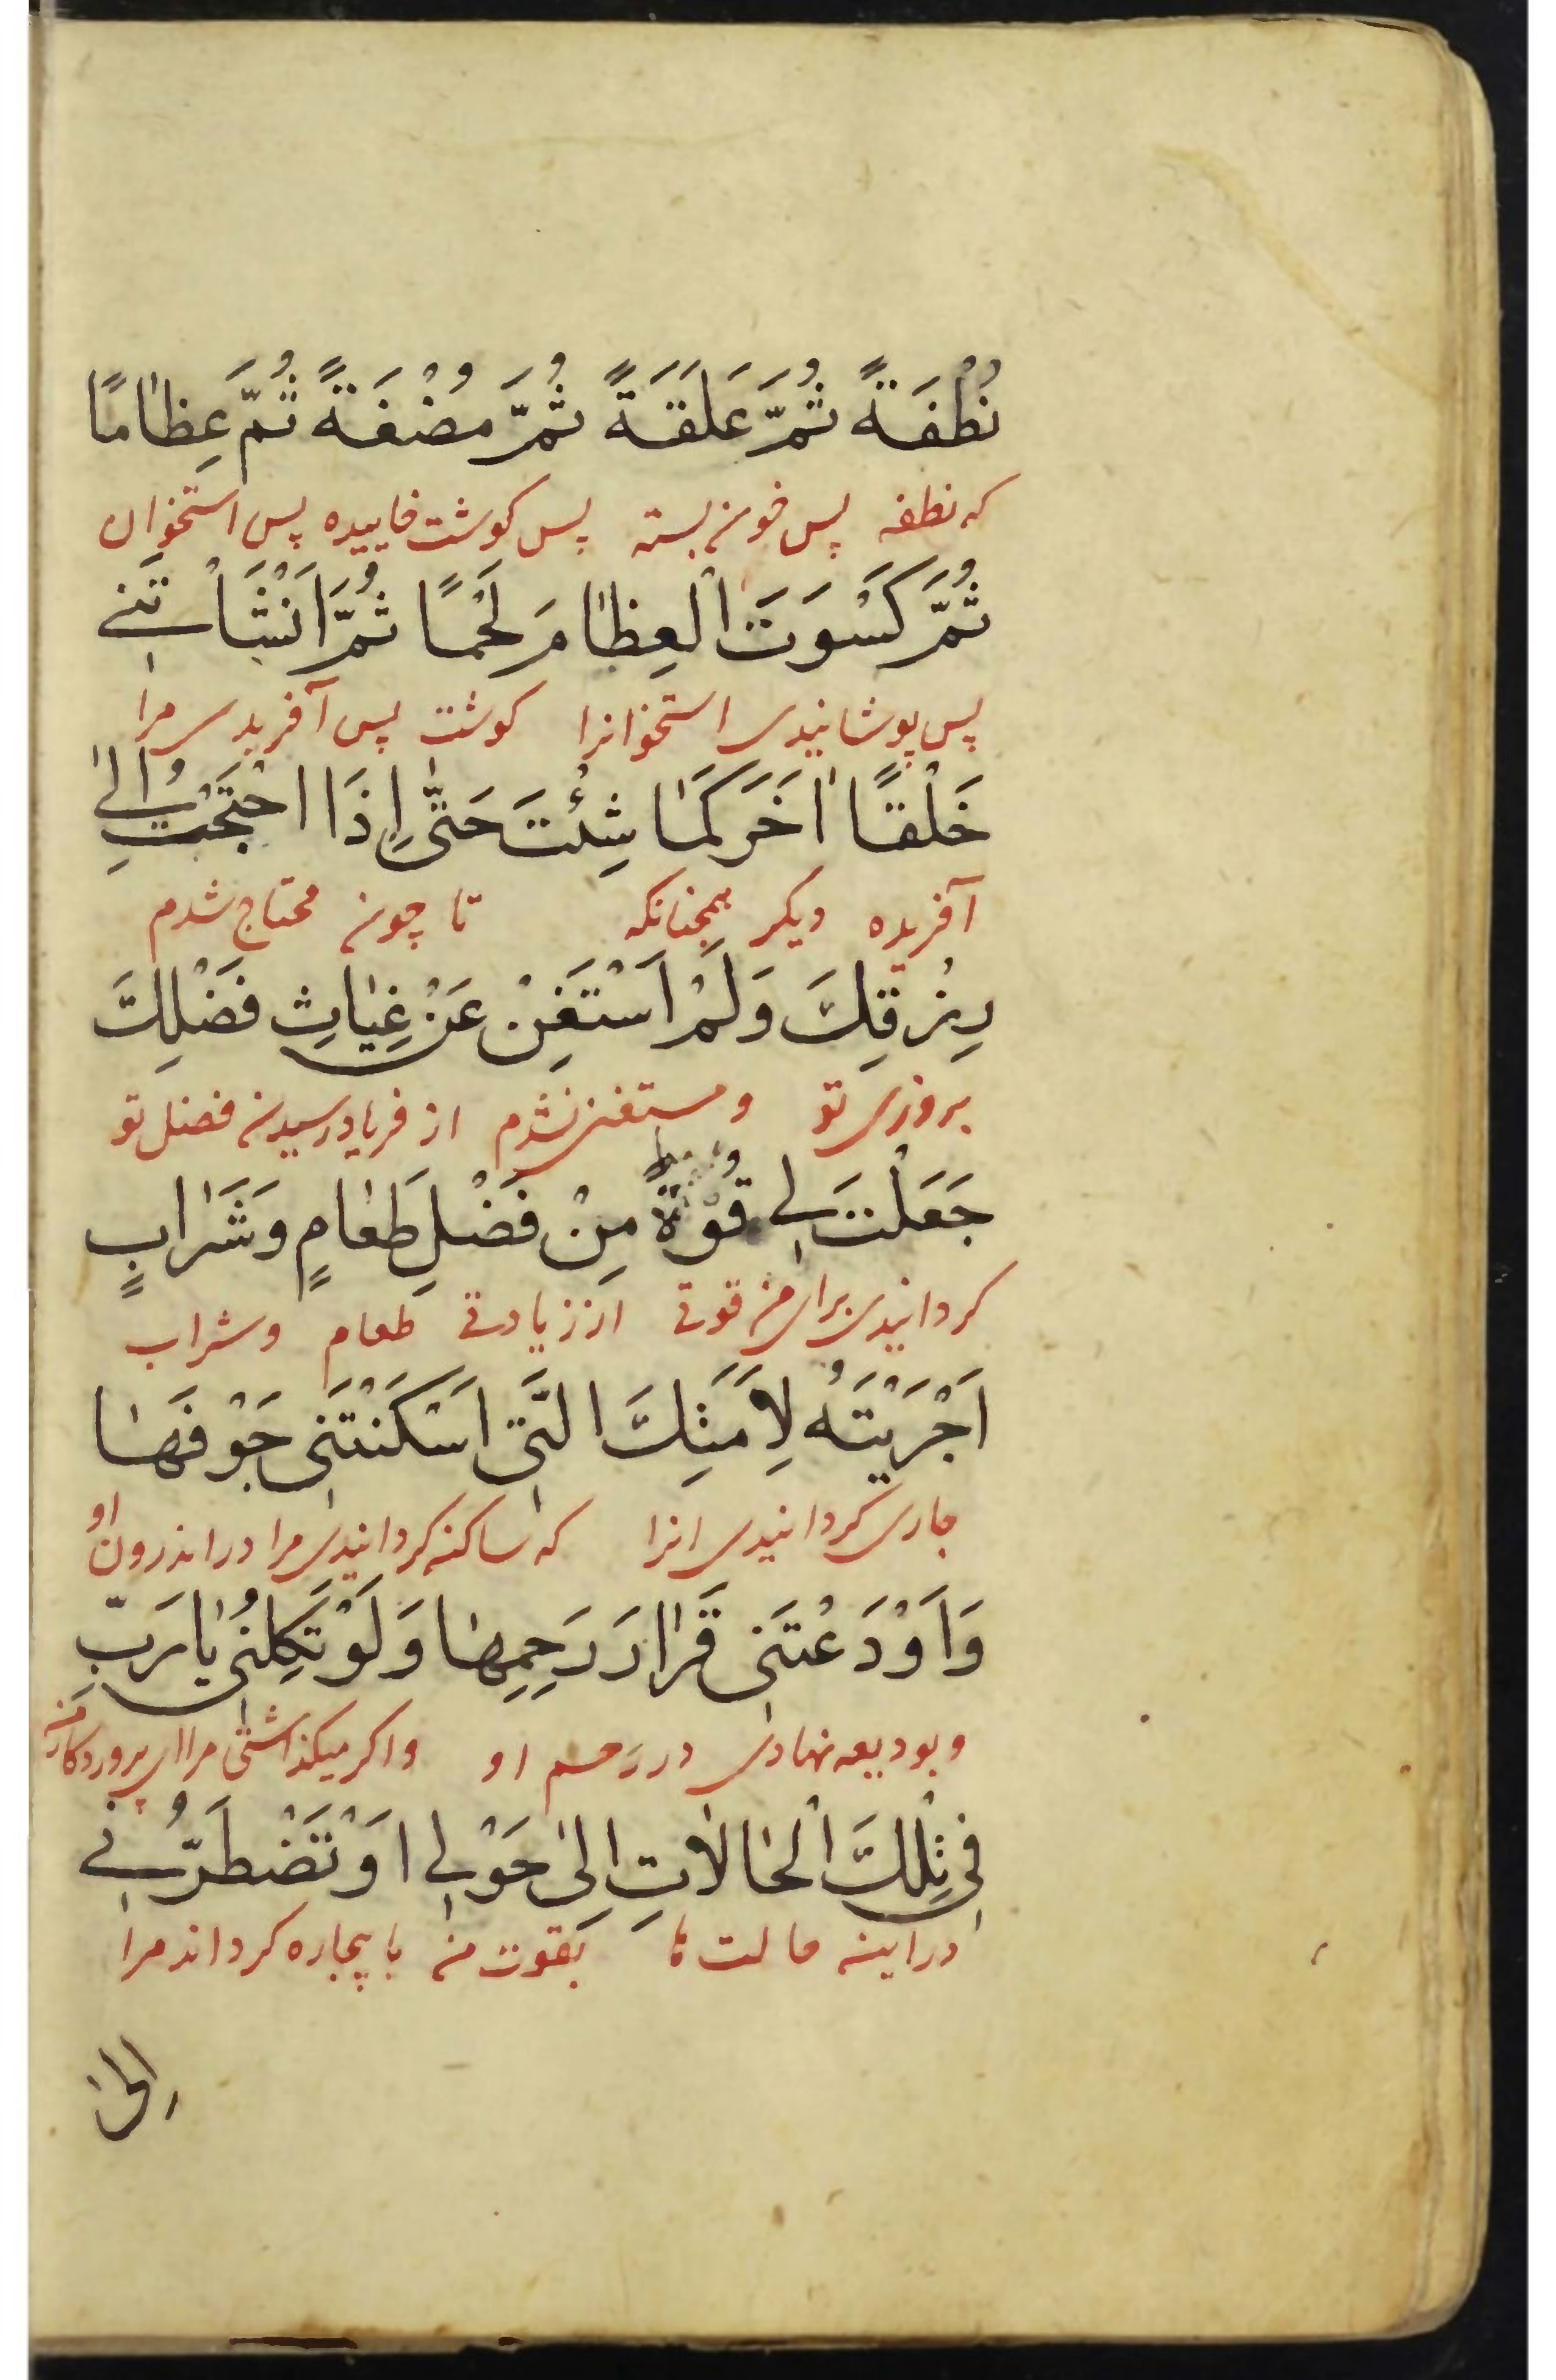 نُطْفَةً ثُمَّ عَلَقَةً ثُمَّ مُضْغَةً ثُمَّ عِظٰامًا
که نطفه پس خون بسته پس کوشت خاییده پس استخوان
ثُمَّ كَسَوْتَ الْعِظٰامَ لَحْمًا ثُمَّ اَنْشَاْتَنِي
پس پوشانیدی استخوانرا کوشت پس آفریدی مرا
خَلْقًا اٰخَرَ كَمٰا شِئْتَ حَتّٰى اِذَا احْتَجْتُ اِلىٰ
آفریده دیکر همچنانکه تا چون محتاج شدم
رِزْقِكَ وَلَمْ اَسْتَغْنِ عَنْ غِيٰاثِ فَضْلِكَ
بروزی تو و مستغنی نشدم از فریاد رسیدن فضل تو
جَعَلْتَ لِي قُوْةً مِنْ فَضْلِ طَعٰامٍ وَشَرٰابٍ
کردانیدی برای من قوتی از زیادتی طعام و شراب
اَجْرَيْتَهُ لِاَمَتِكَ الَّتِي اَسْكَنْتَنِي جَوْفَهٰا
جاری کردانیدی انرا که ساکن کردانیدی مرا در اندرون او
وَاَوْدَعْتَنِي قَرٰارَ رَحِمِهٰا وَلَوْ تَكِلْنِي يٰا رَبِّ
و بودیعه نهادی در رحم او واکر میکذاشتی مرا ای پروردکار من
فِي تِلْكَ الْحٰالاٰتِ اِلىٰ حَوْلِي اَوْ تَضْطَرُّنِي
در این حالت ها بقوت من یا بیچاره کرداند مرا
اِلىٰ